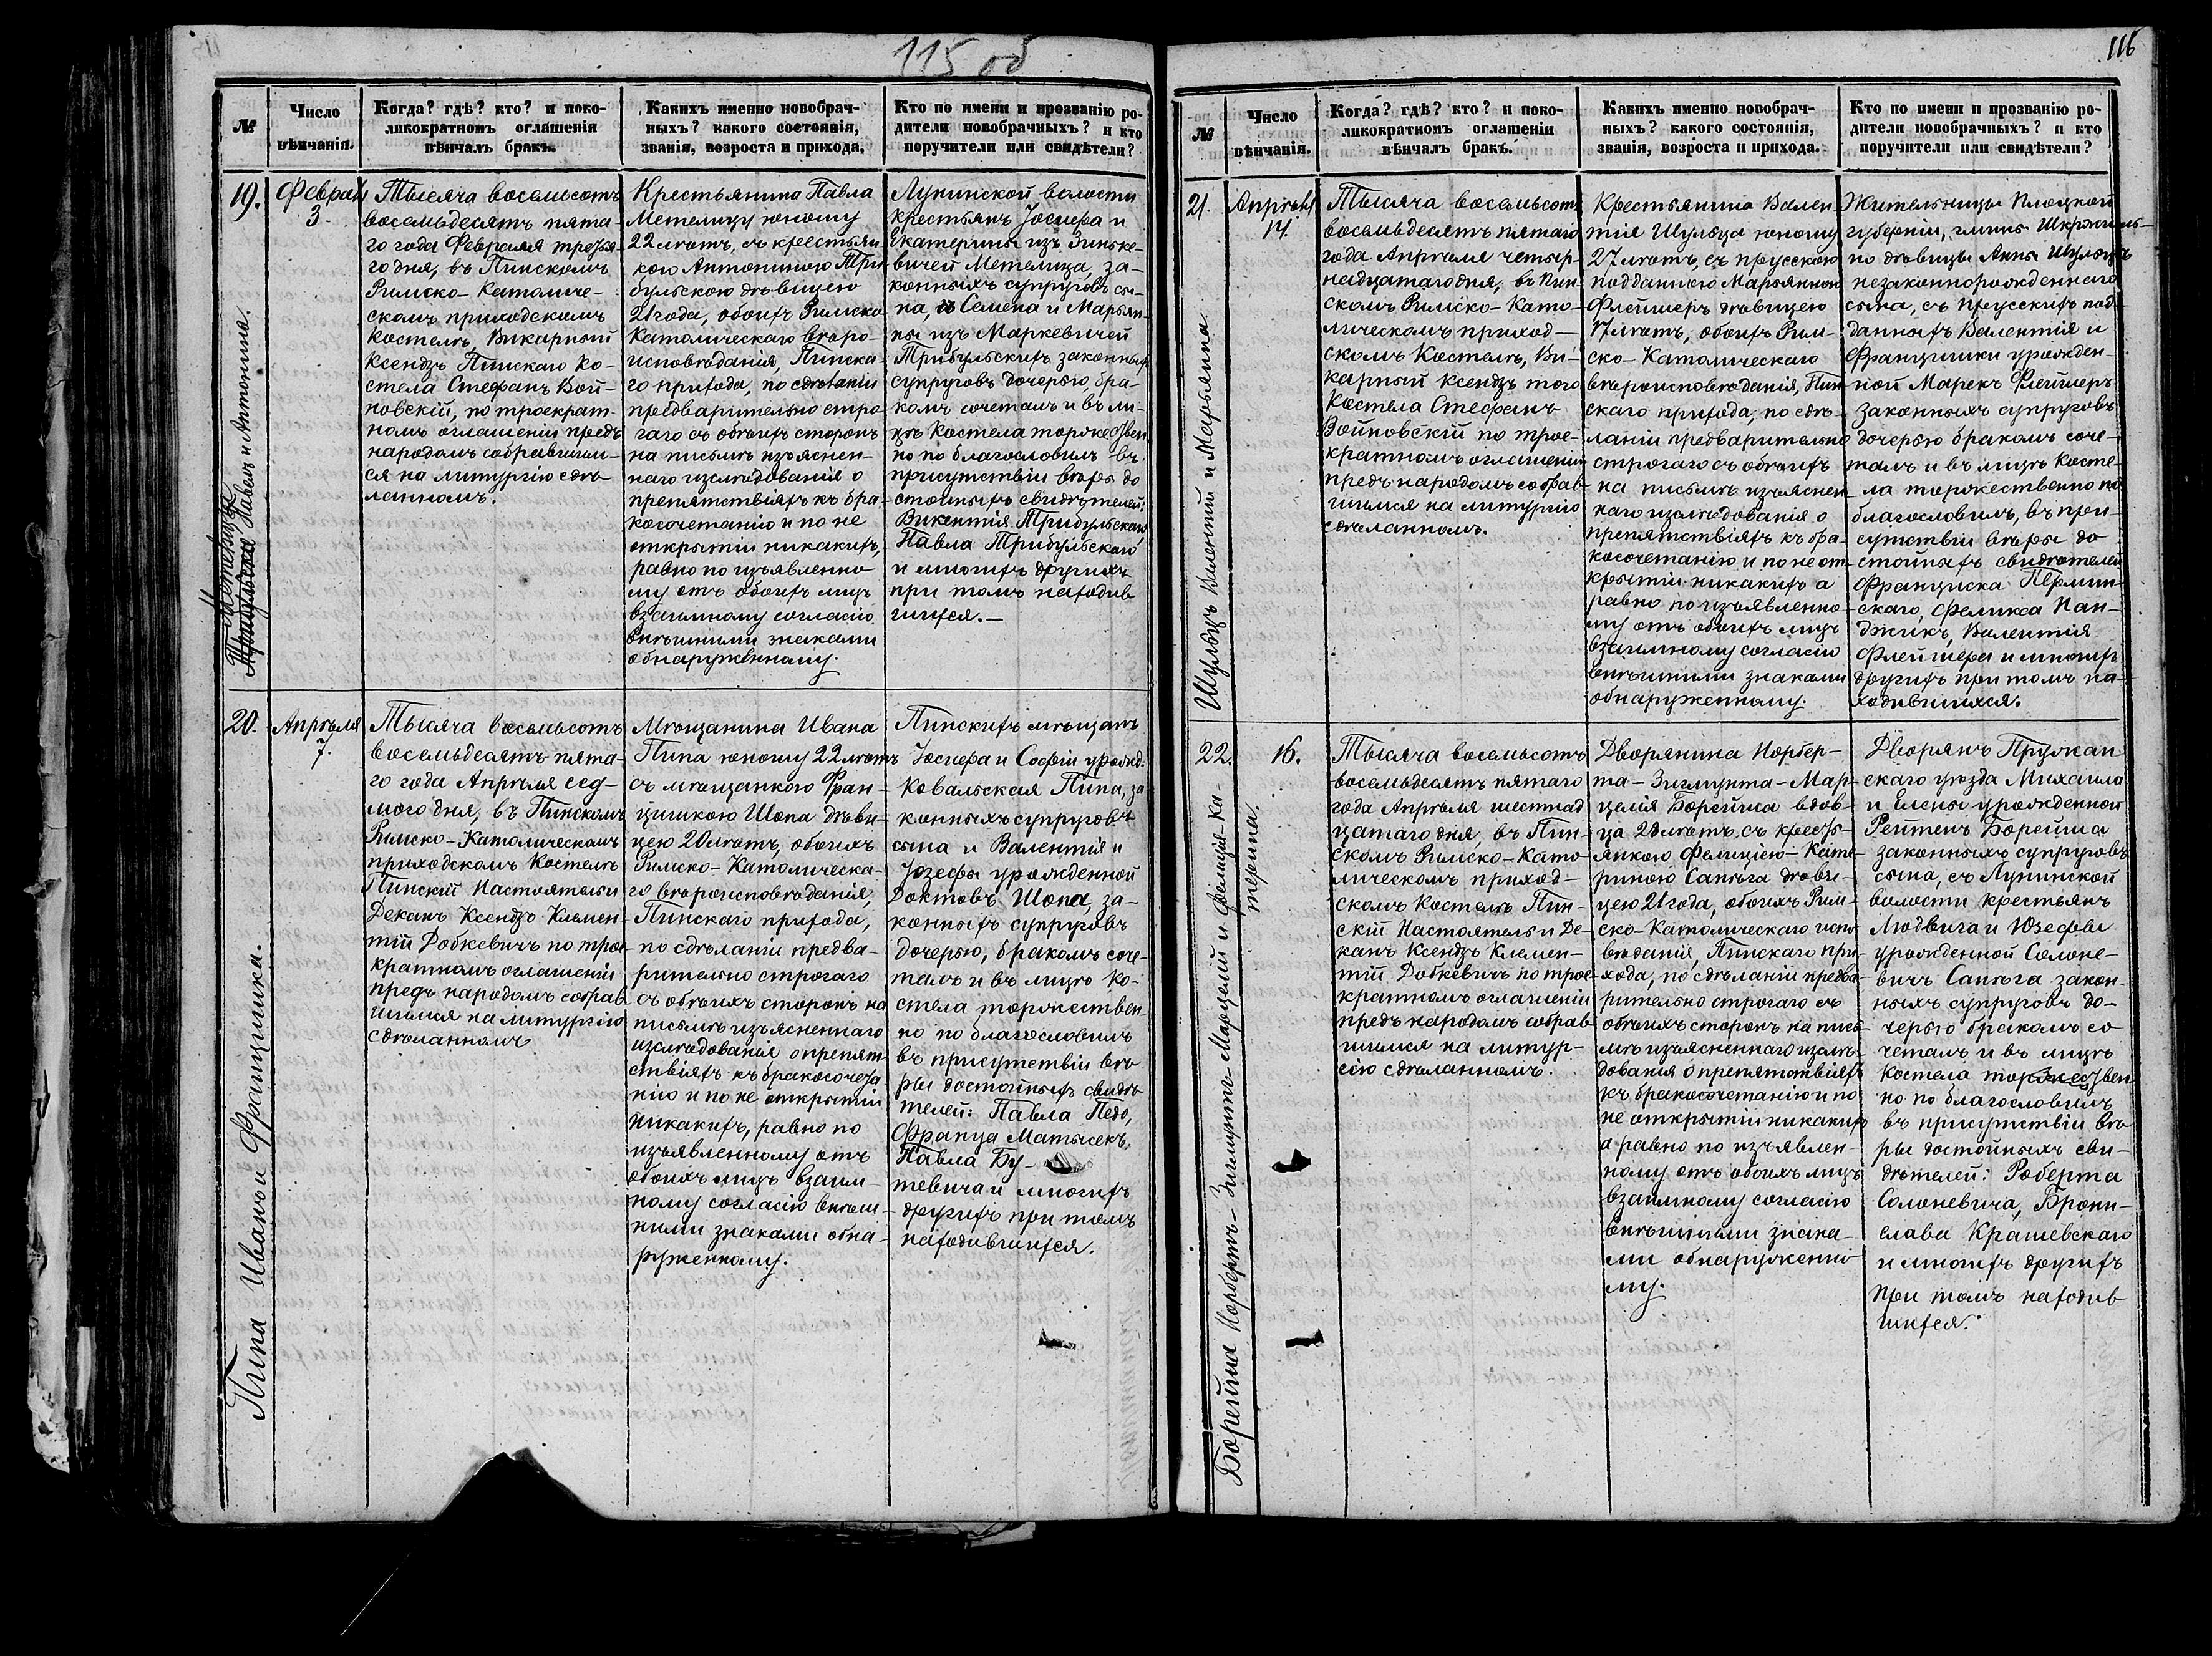 115 об
№
Число
вѣнчанія.
Когда? гдѣ? кто? и поко-
ликократномъ оглашеніи
вѣнчалъ бракъ.
Какихъ именно новобрач-
ныхъ? какого состоянія,
званія, возроста и прихода.
Кто по имени и прозванію ро-
дители новобрачныхъ? и кто
поручители или свидѣтели?
19.
Феврал
3.
Метелица
Павелъ и Антонина.
Тысяча восемьсотъ
восемьдесятъ пята-
го года Февраля третья-
го дня, въ Пинскомъ
Римско-Католиче-
скомъ приходскомъ
Костелѣ, Викарный
Ксендзъ Пинскаго Ко-
стела Стефанъ Вой-
новскій, по троекрат-
номъ оглашеніи предъ
народомъ собравшим-
ся на литургію сдѣ-
ланномъ.
Крестьянина Павла
Метелицу юношу
22 лѣтъ, съ крестьян-
кою Антониною Три-
бульскою дѣвицею
21 года, обоихъ Римско
Католическаго вѣро-
исповѣданія, Пинска-
го прихода, по сдѣланіи
предварительно стро
гаго съ обѣихъ сторонъ
на письмѣ изъяснен-
наго изслѣдованія о
препятствіяхъ къ бра-
косочетанію и по не
открытіи никакихъ,
равно по изъявленно
му отъ обоихъ лицъ
взаимному согласію
внѣшними знаками
обнаруженному.
Лунинской волости
крестьянъ Іосифа и
Екатерины изъ Зиньке-
вичей Метелица, за-
конныхъ супруговъ сы-
на, съ Семена и Марьян-
ны изъ Маркевичей
Трибульскихъ законныхъ
супруговъ дочерью, бра-
комъ сочеталъ и въ ли-
цѣ Костела торжествен
но по благословилъ въ
присутствіи вѣры до
стойныхъ свидѣтелей:
Викентія Трибульскаго,
Павла Трибульскаго
и многихъ другихъ
при томъ находив
шихся.—
20.
Апрѣля
7.
Пипа Иванъ и Францишка.
Тысяча восемьсотъ
восемьдесятъ пята-
го года Апрѣля сед-
мого дня, въ Пинскомъ
Римско-Католическомъ
приходскомъ Костелѣ
Пинскій Настоятель и
Деканъ Ксендзъ Клемен-
тій Добкевичъ по трое
кратномъ оглашеніи
предъ народомъ собрав
шимся на литургію
сдѣланномъ
Мѣщанина Ивана
Пипа юношу 22 лѣтъ
съ мѣщанкою Фран-
цишкою Шопа дѣви-
цею 20 лѣтъ, обоихъ
Римско-Католическа-
го вѣроисповѣданія,
Пинскаго прихода,
по сдѣланіи предва-
рительно строгаго
съ обѣихъ сторонъ на
письмѣ изъясненнаго
изслѣдованія о препят-
ствіяхъ къ бракосочета
нію и по не открытіи
никакихъ, равно по
изъявленному отъ
обоихъ лицъ взаим-
ному согласію внѣш-
ними знаками обна-
руженному.
Пинскихъ мѣщанъ
Іосифа и Софіи урожд.
Ковальская Пипа, за
конныхъ супруговъ
сына и Валентія и
Іозефы урожденной
Доктовъ Шопа, за-
конныхъ супруговъ
дочерью, бракомъ соче-
талъ и въ лицѣ Ко-
стела торжествен-
но по благословилъ
въ присутствіи вѣ
ры достойныхъ свидѣ-
телей: Павла Педо,
Франца Матысекъ,
Павла Бу-
тевича и многихъ
другихъ при томъ
находившихся.
116
№
Число
вѣнчанія.
Когда? гдѣ? кто? и поко-
ликократномъ оглашеніи
вѣнчалъ бракъ.
Какихъ именно новобрач-
ныхъ? какого состоянія,
званія, возроста и прихода.
Кто по имени и прозванію ро-
дители новобрачныхъ? и кто
поручители или свидѣтели?
21.
Апрѣля
14.
Шульцъ Валентій и Марьянна.
Тысяча восемьсотъ
восемьдесятъ пятаго
года Апрѣля четыр-
надцатаго дня, въ Пин-
скомъ Римско-Като-
лическомъ приход-
скомъ Костелѣ, Ви-
карный Ксендзъ того
Костела Стефанъ
Войновскій по трое-
кратномъ оглашеніи
предъ народомъ собрав-
шимся на литургію
сдѣланномъ.
Крестьянина Вален
тія Шульца юношу
27 лѣтъ, съ прусскою
подданною Марьянною
Флейшеръ дѣвицею
17 лѣтъ, обоихъ Рим-
ско-Католическаго
вѣроисповѣданія, Пин
скаго прихода, по сдѣ-
ланіи предварительно
строгаго съ обѣихъ
на письмѣ изъяснен-
наго изслѣдованія о
препятствіяхъ къ бра-
косочетанію и по не от-
крытіи никакихъ а
равно по изъявленно-
му отъ обоихъ лицъ
взаимному согласію
внѣшними знаками
обнаруженному.
Жительницы Плоцкой
губерніи, гмины
по дѣвицы Анны Шульцъ
незаконнорожденнаго
сына, съ прусскихъ под-
данныхъ Валентія и
Францишки урожден-
ной Марекъ Флейшеръ
законныхъ супруговъ
дочерью бракомъ соче-
талъ и въ лицѣ Косте-
ла торжественно по
благословилъ, въ при-
сутствіи вѣры до
стойныхъ свидѣтелей
Франциска Пермин-
скаго, Феликса Пан-
джикъ, Валентія
Флейшера и многихъ
другихъ при томъ на-
ходившихся.
22.
16.
Борейша Норбертъ-Зигмунтъ-Марцелій и Фелиція-Ка-
терина.
Тысяча восемьсотъ
восемьдесятъ пятаго
года Апрѣля шестнад
цатаго дня, въ Пин-
скомъ Римско-Като
лическомъ приход-
скомъ Костелѣ Пин-
скій Настоятель и Де-
канъ Ксендзъ Клемен-
тій Добкевичъ по трое
кратномъ оглашеніи
предъ народомъ собрав
шимся на литур-
гію сдѣланномъ.
Дворянина Норбер-
та-Зигмунта-Мар-
целія Борейша вдов-
ца 28 лѣтъ, съ кресть-
янкою Фелиціею-Кате-
риною Сапѣга дѣви-
цею 21 года, обоихъ Рим-
ско-Католическаго испо
вѣданія, Пинскаго при-
хода, по сдѣланіи предва
рительно строгаго съ
обѣихъ сторонъ на пись
мѣ изъясненнаго изслѣ-
дованія о препятствіяхъ
къ бракосочетанію и по
не открытіи никакихъ
а равно по изъявлен-
ному отъ обоихъ лицъ
взаимному согласію
внѣшними знака-
ми обнаруженно
му.
Дворянъ Пружан
скаго уѣзда Михаила
и Елены урожденной
Рейтенъ Борейша
законныхъ супруговъ
сына, съ Лунинской
волости крестьянъ
Людвига и Юзефы
урожденной Солоне-
вичъ Сапѣга закон-
ныхъ супруговъ до-
черью бракомъ со
четалъ и въ лицѣ
Костела торжествен-
но по благословилъ
въ присутствіи вѣ
ры достойныхъ сви-
дѣтелей: Роберта
Солоневича, Брони-
слава Крашевскаго
и многихъ другихъ
при томъ находив
шихся.